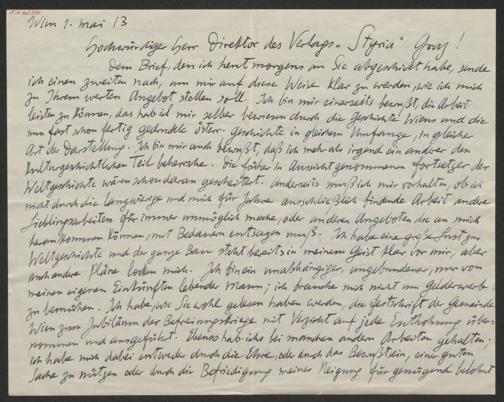 Wien 1. Mai 13
Hochwürdiger Herr Direktor des Verlags „Styria" Graz!
Dem Brief, den ich heut morgens an Sie abgeschickt habe, sende
ich einen zweiten nach, um mir auf diese Weise klar zu werden, wie ich mich
zu Ihrem werten Angebot stellen soll. Ich bin mir einerseits bewußt, die Arbeit
leisten zu können, das hab ich mir selber bewiesen durch die Geschichte Wiens und die
nun fast schon fertig gedruckte österr. Geschichte in gleichem Umfange, in gleicher
Art der Darstellung. Ich bin mir auch bewußt, daß ich mehr als irgend ein andrer den
kulturgeschichtlichen Teil beherrsche. Die früher in Aussicht genommenen Fortsetzer der
Weltgeschichte wären schon daran gescheitert. Anderseits muß ich mir vorhalten, ob ich
nicht durch die langwierige und mich für Jahre ausschließlich bindende Arbeit andre
Lieblingsarbeiten für immer unmöglich mache, oder anderen Angeboten die an mich
herankommen können, mit Bedauern entsagen muß. Ich habe eine große Lust zur
Weltgeschichte und der ganze Bau steht bereits in meinem Geist klar vor mir, aber
auch andere Pläne locken mich. Ich bin ein unabhängiger, ungebundener, nur von
meinen eigenen Einkünften lebender Mann; ich brauche mich nicht um Gelderwerb
zu bemühen. Ich habe, wie Sie wohl gelesen haben werden, die Festschrift der Gemeinde
Wien zum Jubiläum der Befreiungskriege mit Verzicht auf jede Entlohnung über-
nommen und ausgeführt. Ebenso hab ichs bei manchen andern Arbeiten gehalten;
ich habe mich dabei entweder durch die Ehre, oder durch das Bewußtsein, eine guten
Sache zu nützen oder durch die Befriedigung meiner Neigung für genügend belohnt